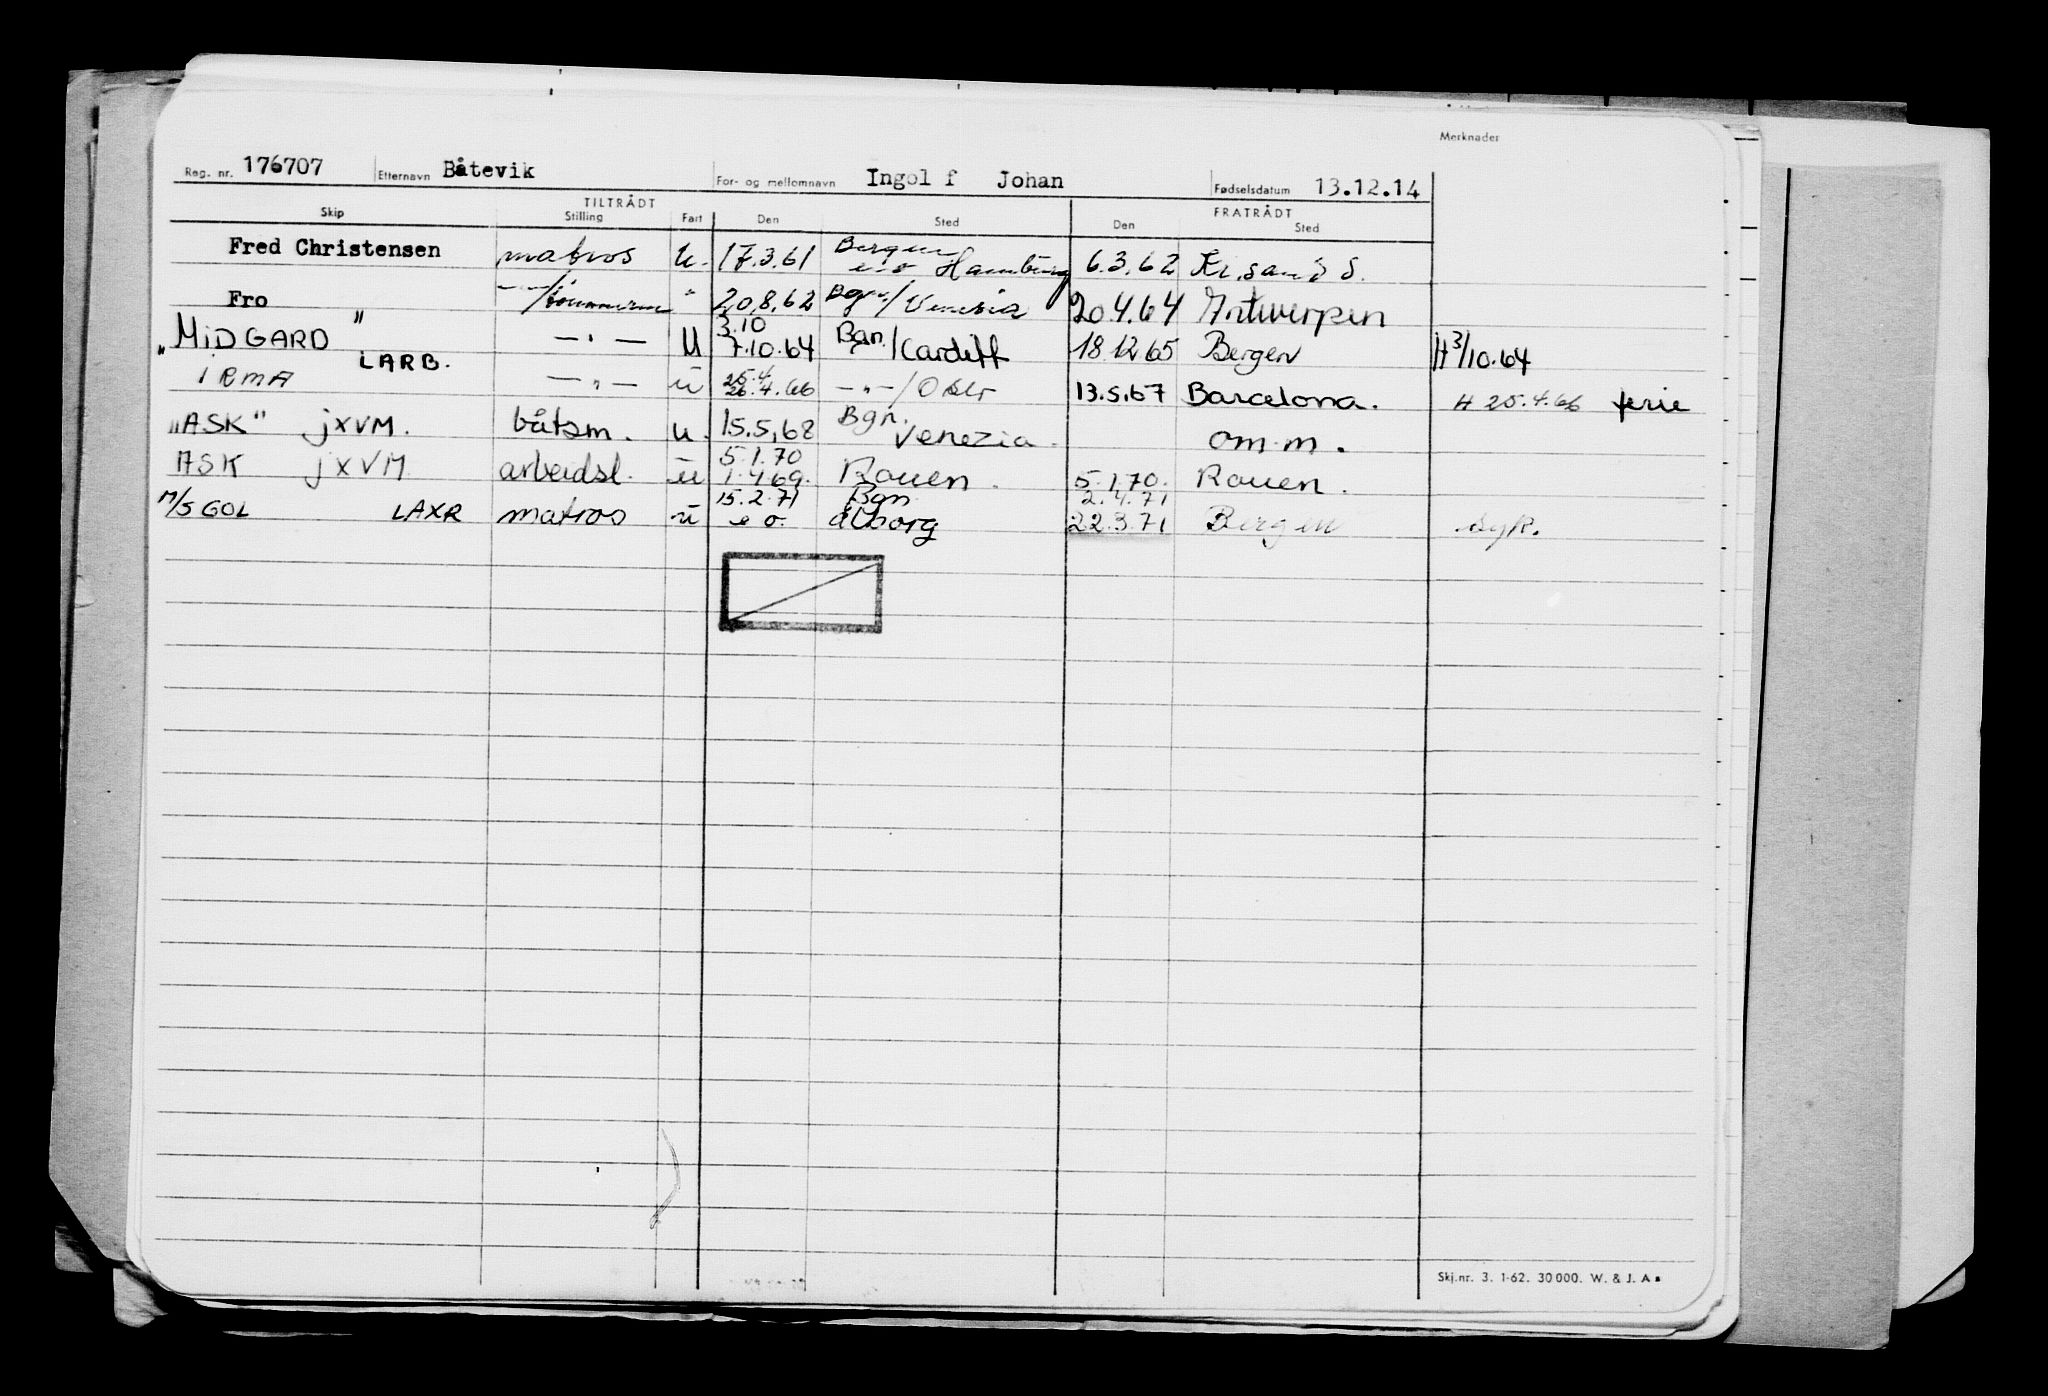 Merknader
Reg. nr. 176707 Etternavn Båtevik For- og mellomnavn Ingolf Johan Fødselsdatum 13.12.14
TILTRÅDT FRATRÅDT
Skip Stilling Fart Den Sted Den Sted
Fred Christensen matros u. 17.3.61 Bergen e.o Hamburg 6.3.62 Kr.sand S.
Fro —"—/tømmerm " 20,8,62 Bgn/Venezia 20.4.64 Antwerpen
"MIDGARD" LARB. —"— U 3.10 7.10.64 Bgn./Cardiff 18.12.65 Bergen H 3/10.64
"IRMA —"— u 25.4 26.4.66 —"—/Oslo 13.5.67 Barcelona. H 25.4.66 ferie
"ASK" jXVM. båtsm. u. 15.5,68 Bgn. Venezia. om.m.
ASK jXVM arbeidsl. u 5.1.70 1.4.69. Rouen. 5.1.70. Rouen.
M/S GOL LAXR matros u 15.2.71 e o. Bgn Ålborg 2.4.71 22.3.71 Bergen syk.
Skj.nr. 3. 1-62. 30000. W. & J. As